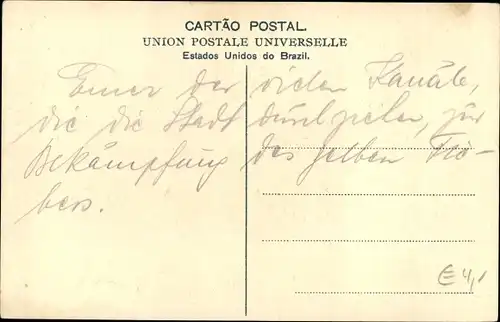 CARTÃO POSTAL.
UNION POSTALE UNIVERSELLE
Estados Unidos do Brazil.
Einer der vielen Kanäle,
die die Stadt durchziehen, zur
Bekämpfung des gelben Fie-
bers.
E 4,1